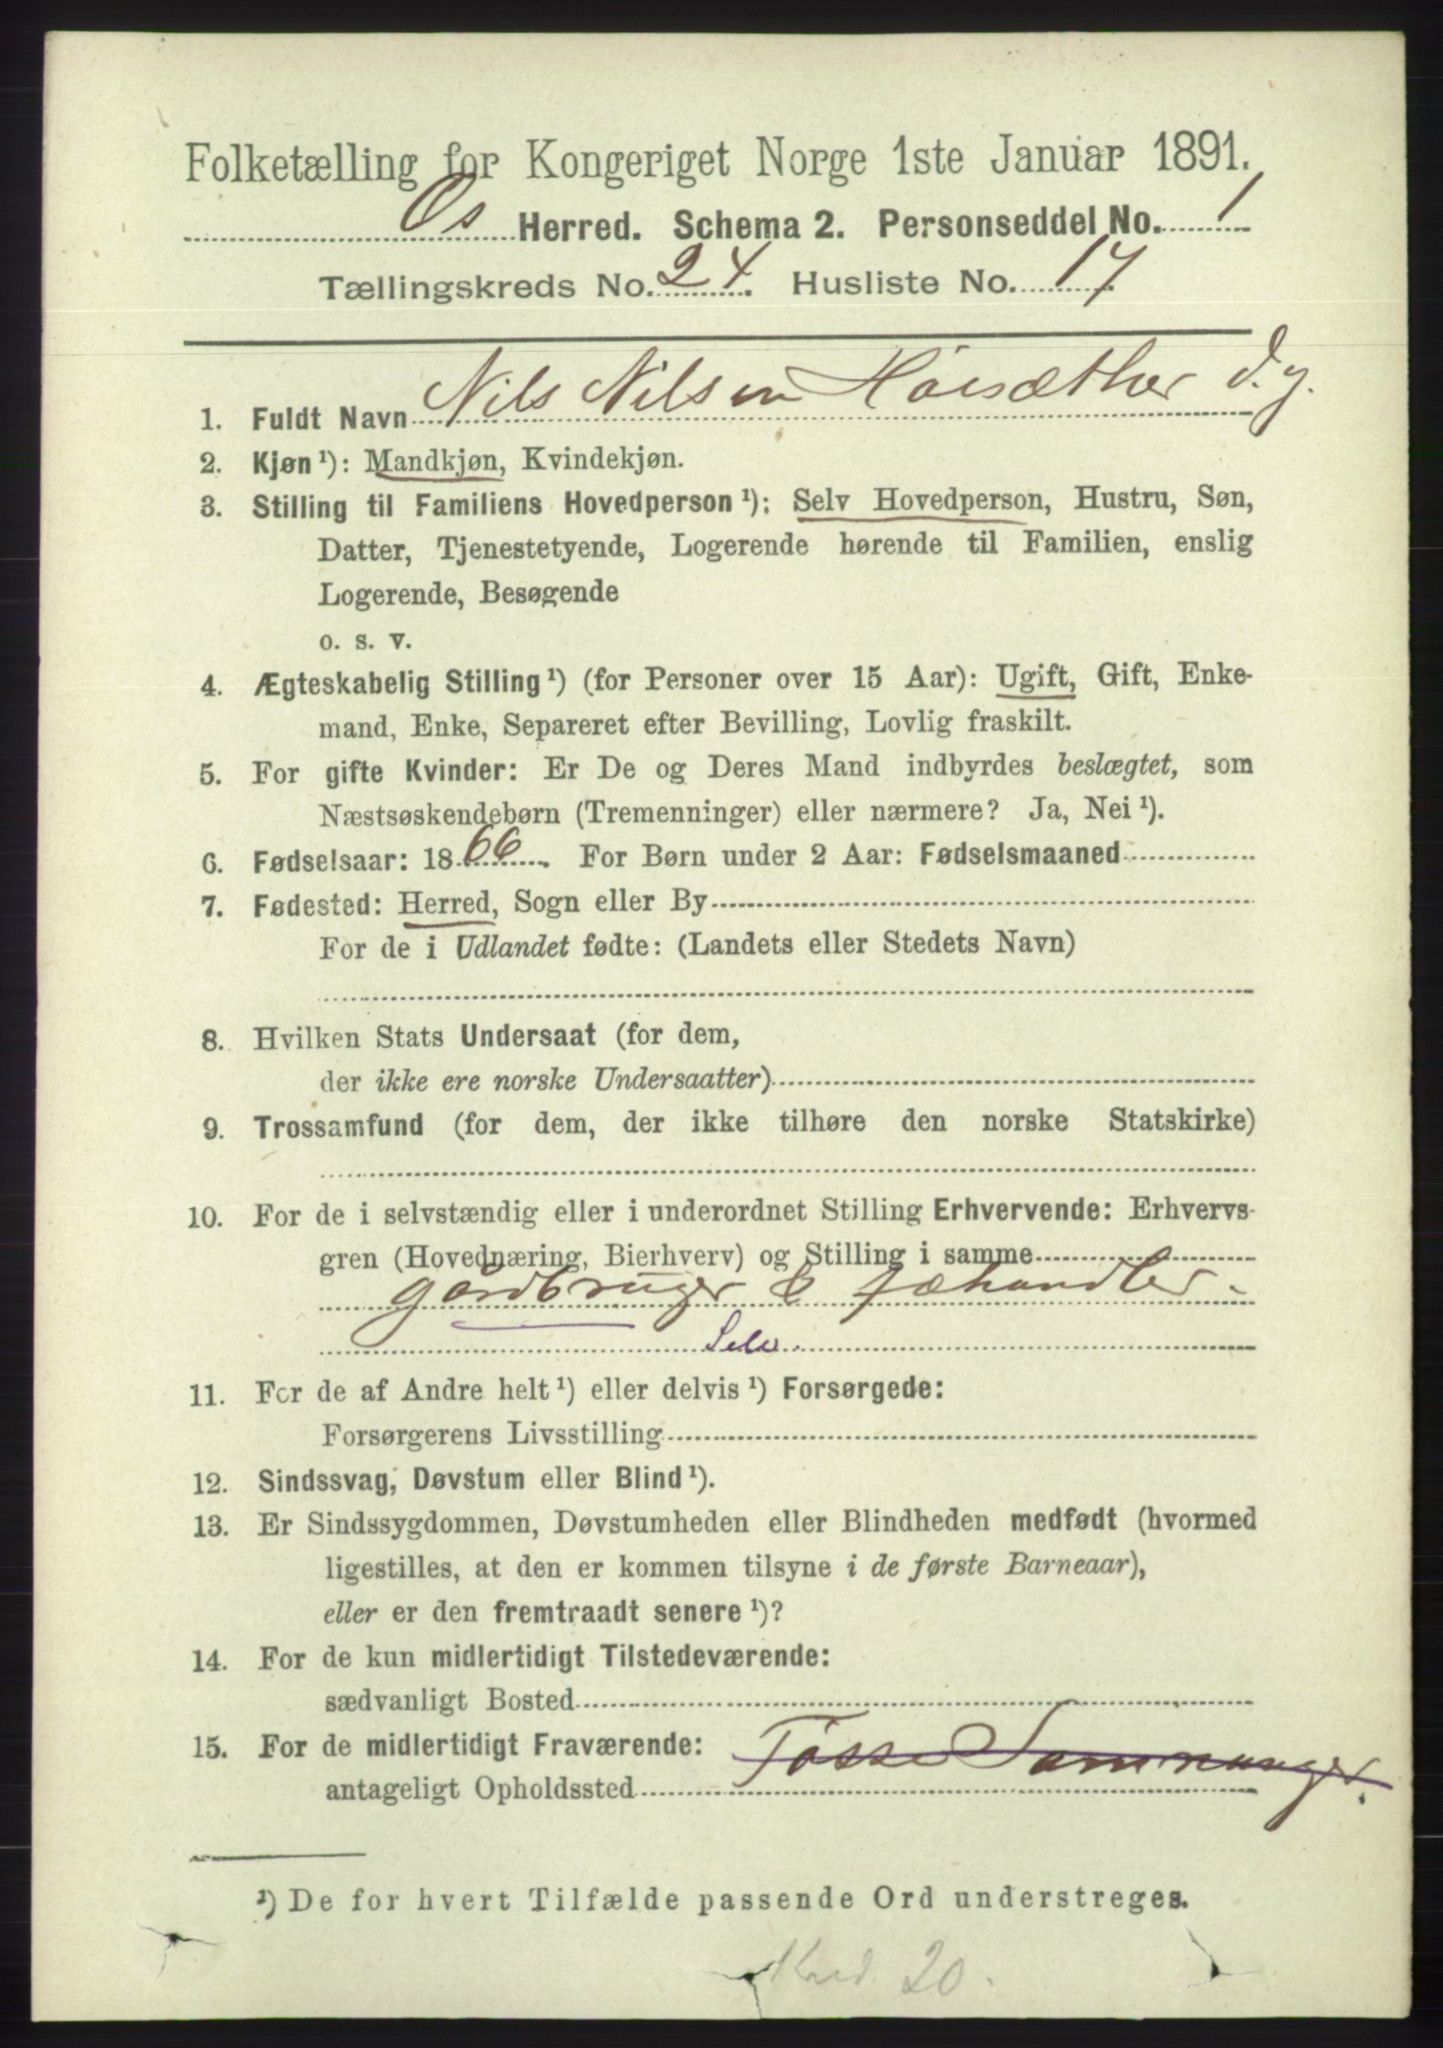 Folketælling for Kongeriget Norge 1ste Januar 1891.
Os Herred. Schema 2. Personseddel No. 1
Tællingskreds No. 24. Husliste No. 17
1. Fuldt Navn Nils Nilsen Hóisæther d.y.
2. Kjøn ¹): Mandkjøn, Kvindekjøn.
3. Stilling til Familiens Hovedperson ¹): Selv Hovedperson, Hustru, Søn,
Datter, Tjenestetyende, Logerende hørende til Familien, enslig
Logerende, Besøgende
o. s. v.
4. Ægteskabelig Stilling ¹) (for Personer over 15 Aar): Ugift, Gift, Enke-
mand, Enke, Separeret efter Bevilling, Lovlig fraskilt.
5. For gifte Kvinder: Er De og Deres Mand indbyrdes beslægtet, som
Næstsøskendebørn (Tremenninger) eller nærmere? Ja, Nei ¹).
6. Fødselsaar: 1866. For Børn under 2 Aar: Fødselsmaaned
7. Fødested: Herred, Sogn eller By
For de i Udlandet fødte: (Landets eller Stedets Navn)
8. Hvilken Stats Undersaat (for dem,
der ikke ere norske Undersaatter)
9. Trossamfund (for dem, der ikke tilhøre den norske Statskirke)
10. For de i selvstændig eller i underordnet Stilling Erhvervende: Erhvervs-
gren (Hovednæring, Bierhverv) og Stilling i samme
gårdbruger & fæhandler.
Selv.
11. For de af Andre helt ¹) eller delvis ¹) Forsørgede:
Forsørgerens Livsstilling
12. Sindssvag, Døvstum eller Blind ¹).
13. Er Sindssygdommen, Døvstumheden eller Blindheden medfødt (hvormed
ligestilles, at den er kommen tilsyne i de første Barneaar),
eller er den fremtraadt senere ¹)?
14. For de kun midlertidigt Tilstedeværende:
sædvanligt Bosted
15. For de midlertidigt Fraværende: Tósse Samnanger.
antageligt Opholdssted
¹) De for hvert Tilfælde passende Ord understreges.
20.